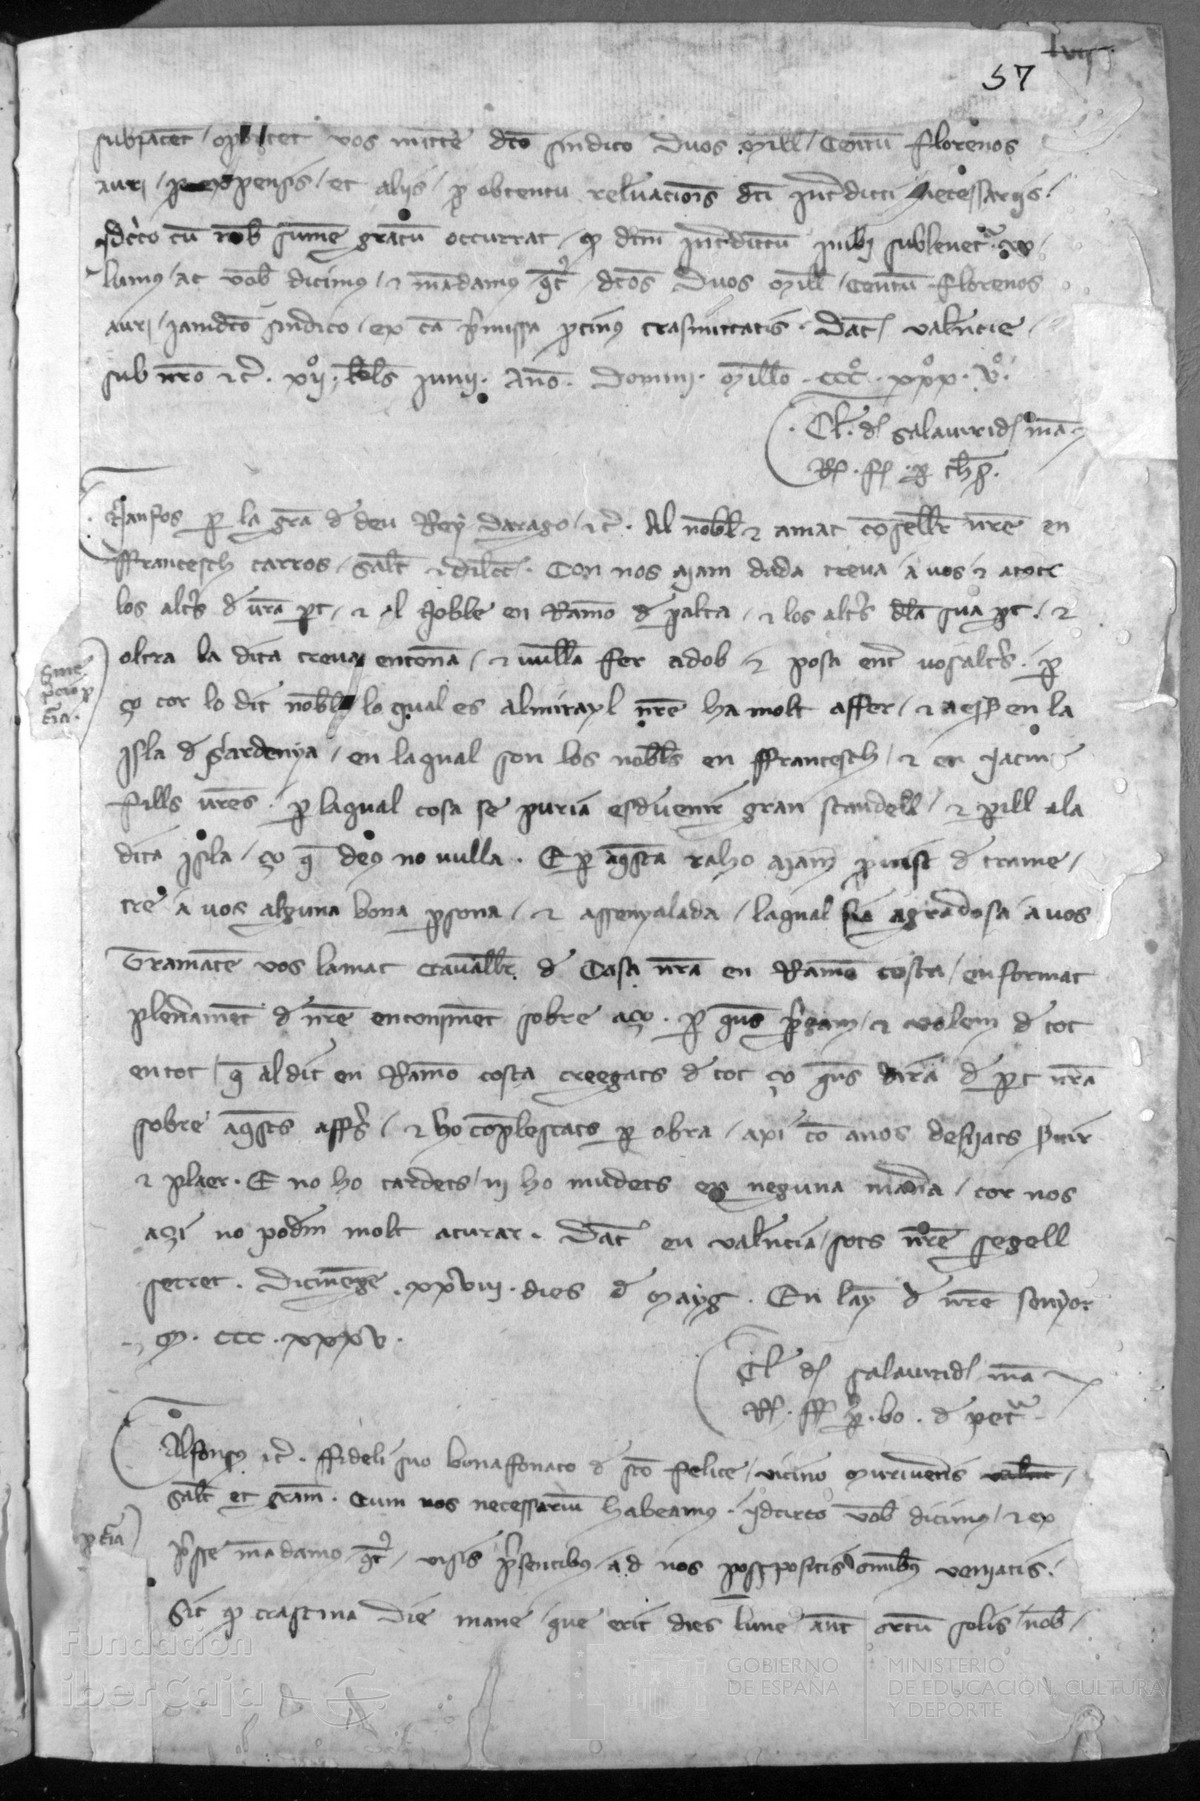 lvij
57
subiacet / oportet vos mittere dco sindico duos mill / Centu florenos
auri / p expensis / et aliis / p obtentu relevacionis dci Interdicti necessariis /
Idcirco cu nob summe gratu occurrat / q dcm Interdictum inibi sublevet
llamus / ac vob dicimus / & mandamus qt / dcos duos mill / Centu florenos
auri / iamdco sindico / ex ca pmissa ptinus trasmittatis . Dat valencie /
sub nro &c . xij . kls Junij . Ano . Domini . Millo . CCC . xxx . v .
Cl . d salaurrid ma
R . f . p thes .
Nanfos p la gra de deu Rey darago / &c . Al nobl & amat cosellr nre en
ffrancesch carros / salt & dilcc . Con nos aiam dada treva / a vos & a tots
los altrs d vra pt / & al noble en Ramo d peralta / & los altrs dla sua pt / &
oltra la dita treva entena / & vulla fer adob & posa ent vosaltrs . p
ço cor lo dit nobl lo qual es almirayl nre ha molt affer / & aesp en la
isla d Sardenya / en la qual son los nobls en ffrancesch / & en Jacme
fills vres . p la qual cosa se puria esdevenir gran scandell / & pill ala
dita isla / ço q deus no vulla . E p aqsta raho aiam pvist d trame /
tre a vos alguna bona psona / & assenyalada / laqual sia agradosa a vos
Trametē vos lamat Cavallr d Casa nra en Ramo costa / enformat
plenament d nre enteniment sobre aço . p qus pgam / & volem d tot
en tot q al dit en Ramo costa creegats d tot ço qus dira d pt nra
sobre aqsts affrs / & ho coplescats p obra / axi co a nos desijats svir
& plaer . E no ho tardets / ni ho mudets en neguna manera / cor nos
açi no podem molt aturar . Dat en valencia / sots nre segell
secret . Diumenge . xxviii . dies d Mayg . En lay d nre senyor
M . CCC . xxxv .
Cl d salaurrid ma
R . ff p . bo . d pet
Alfonsus &c . ffideli suo bonafonato d sco felice / vicino Muriveteris /
salt et gram . Cum nos necessarium habeamus . idcirco vob dicimus / & ex
psse mandamus qt / visis psentibus / ad nos postpositis omibus veniatis .
Sic q crastina die mane / que erit dies lune ant ortu solis / nob /
p cia
Fundación
iberCaja
GOBIERNO
DE ESPAÑA
MINISTERIO
DE EDUCACIÓN, CULTURA
Y DEPORTE